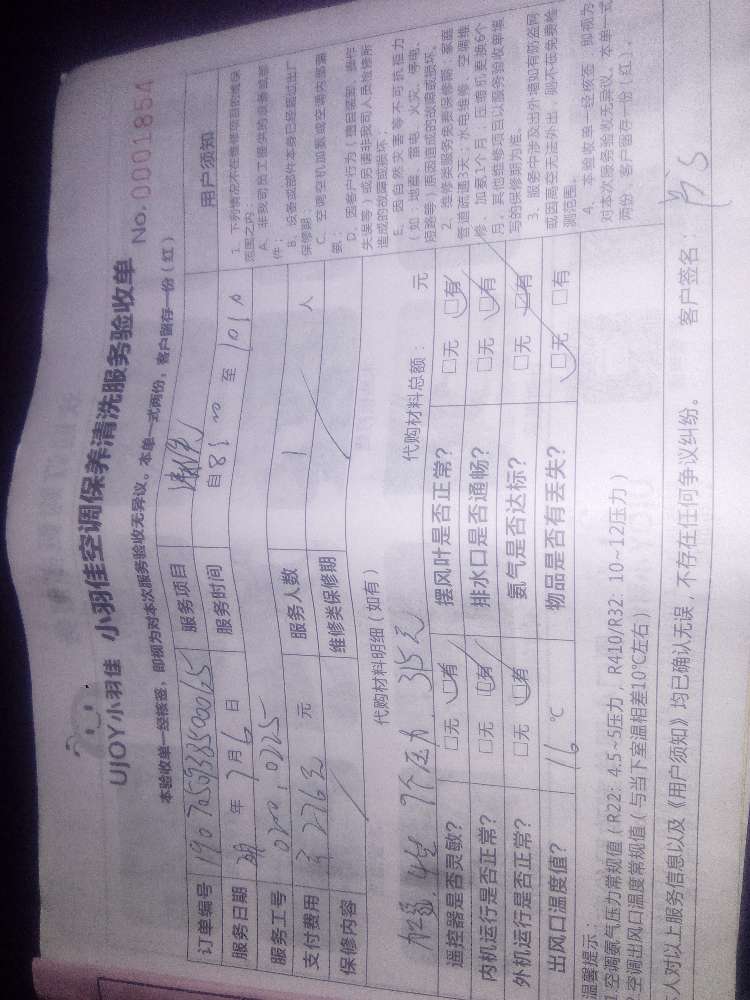 UJOY小羽佳 小羽佳空调保养清洗服务验收单 No. 0001854
本验收单一经核签,即视为对本次服务验收无异议。本单一式两份,客户留存一份(红)
订单编号 19070509385000125 服务项目
服务日期 年 7月6日 服务时间 自8:00 至
服务工号 0200, 0225
支付费用 2276元 元 服务人数 1 人
保修内容 维修类保修期
代购材料明细(如有) 代购材料总额: 元
加氨 4台 9个压力 315元
遥控器是否灵敏? □无 □有 摆风叶是否正常? □无 □有
内机运行是否正常? □无 □有 排水口是否通畅? □无 □有
外机运行是否正常? □无 □有 氨气是否达标? □无 □有
出风口温度值? 16 ℃ 物品是否有丢失? □无 □有
用户须知
1、下列情况不在维修项目的维保范围之内:
A、非我司员工提供的设备或部件;
B、设备或部件本身已经超过出厂保修期;
C、空调空机加氨或空调内部漏氨。
D、因客户行为(擅自装卸、操作失误等)或另请非我司人员检修所造成的故障或损坏;
E、因自然灾害等不可抗拒力(如 地震、雷电、火灾、停电、短路等)原因造成的故障或损坏。
2、维修类服务免费保修期:家庭管道疏通3天;水电维修、空调维修、加氨1个月;压缩机更换6个月,其他维修项目以服务验收单填写的保修期为准。
3、服务中涉及出外墙如有防盗网或因高空无法外出,则不在免费检测范围。
4、本验收单一经核签,即视为对本次服务验收无异议。本单一式两份,客户留存一份(红)。
温馨提示:
1.空调氨气压力常规值(R22:4.5~5压力,R410/R32:10~12压力)
空调出风口温度常规值(与当下室温相差10℃左右)
人对以上服务信息以及《用户须知》均已确认无误,不存在任何争议纠纷。 客户签名: